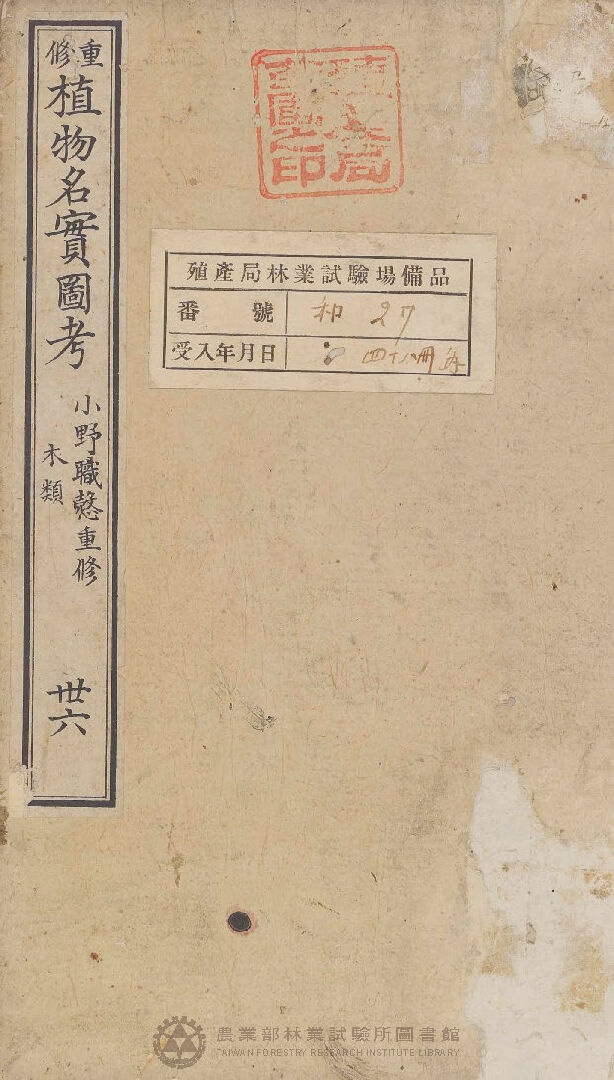 重修
植物名實圖考
小野職愨重修
木類
卅六
殖產局林業試驗場備品
番號 和 27
受入年月日 四十八冊
農業部林業試驗所圖書館
TAIWAN FORESTRY RESEARCH INSTITUTE LIBRARY